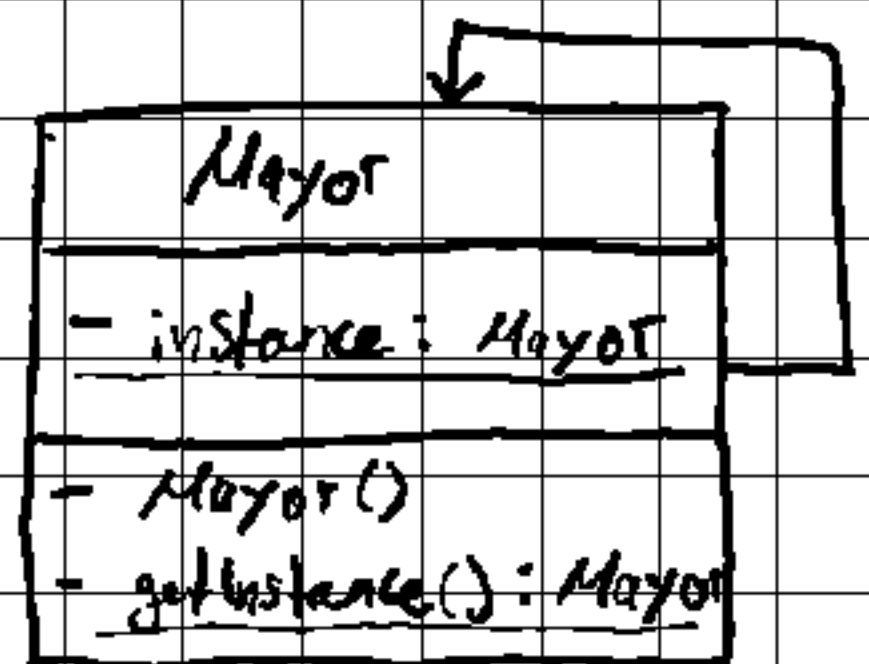 Mayor
- instance: Mayor
- Mayor()
- getInstance(): Mayor